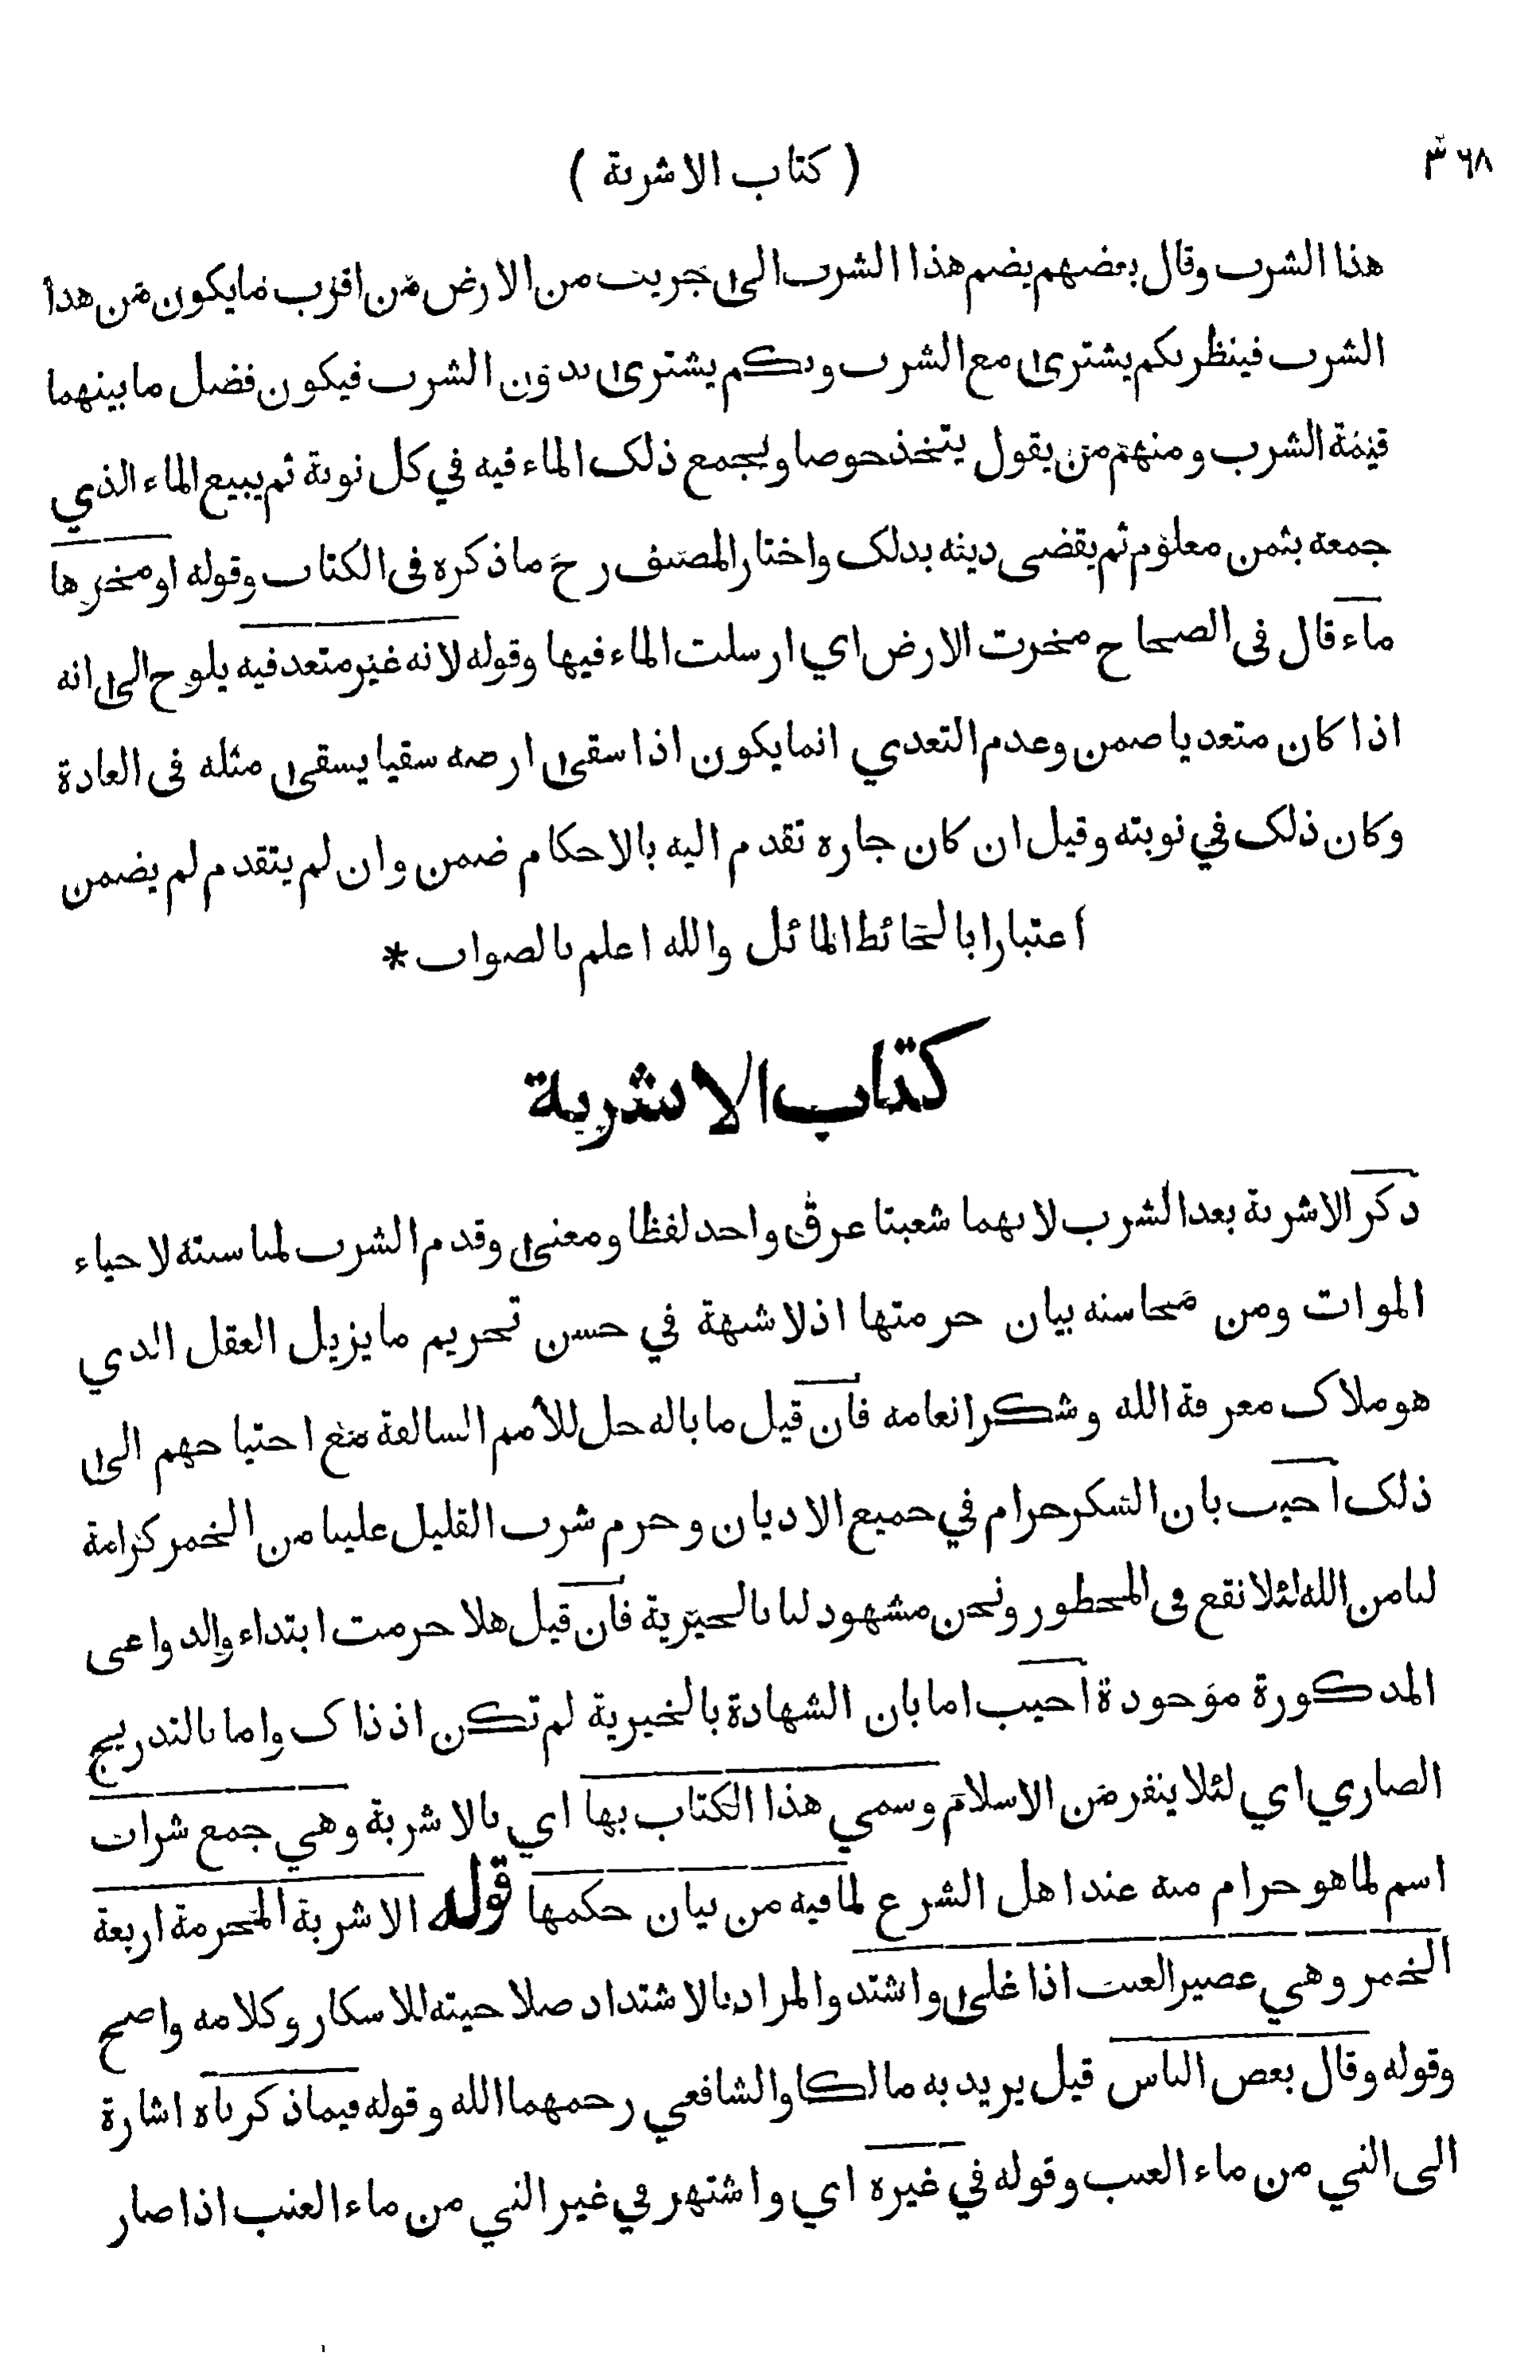 ( كتاب الاشربة ) ٣٦٨
هذا الشرب وقال بعضهم يضم هذا الشرب الى جريب من الارض من اقرب ما يكون من هذا
الشرب فينظر بكم يشترى مع الشرب وبكم يشترى بدون الشرب فيكون فضل ما بينهما
قيمة الشرب ومنهم من يقول يتخذ حوضا ويجمع ذلك الماء فيه في كل نوبة ثم يبيع الماء الذي
جمعه بثمن معلوم ثم يقضى دينه بذلك واختار المصنف رح ما ذكره فى الكتاب وقوله او مخرها
ماء قال فى الصحاح مخرت الارض اي ارسلت الماء فيها وقوله لانه غير متعد فيه يلوح الى انه
اذا كان متعديا ضمن وعدم التعدي انما يكون اذا سقى ارضه سقيا يسقى مثله فى العادة
وكان ذلك في نوبته وقيل ان كان جاره تقدم اليه بالاحكام ضمن وان لم يتقدم لم يضمن
اعتبارا بالحائط المائل والله اعلم بالصواب *
كتاب الاشربة
ذكر الاشربة بعد الشرب لانهما شعبتا عرق واحد لفظا ومعنى وقدم الشرب لمناسبته لاحياء
الموات ومن محاسنه بيان حرمتها اذ لا شبهة في حسن تحريم ما يزيل العقل الذي
هو ملاك معرفة الله وشكر انعامه فان قيل ما باله حل للأمم السالفة مع احتياجهم الى
ذلك اجيب بان السكر حرام في جميع الاديان وحرم شرب القليل علينا من الخمر كرامة
لنا من الله لئلا نقع فى المحظور ونحن مشهود لنا بالخيرية فان قيل هلا حرمت ابتداء والدواعى
المذكورة موجودة اجيب اما بان الشهادة بالخيرية لم تكن اذ ذاك واما بالتدريج
الضاري اي لئلا ينفر من الاسلام وسمي هذا الكتاب بها اي بالاشربة وهي جمع شراب
اسم لما هو حرام منه عند اهل الشرع لما فيه من بيان حكمها قوله الاشربة المحرمة اربعة
الخمر وهي عصير العنب اذا غلى واشتد والمراد بالاشتداد صلاحيته للاسكار وكلامه واضح
وقوله وقال بعض الناس قيل يريد به مالكا والشافعي رحمهما الله وقوله فيما ذكرناه اشارة
الى الني من ماء العنب وقوله في غيره اي واشتهر في غير الني من ماء العنب اذا صار